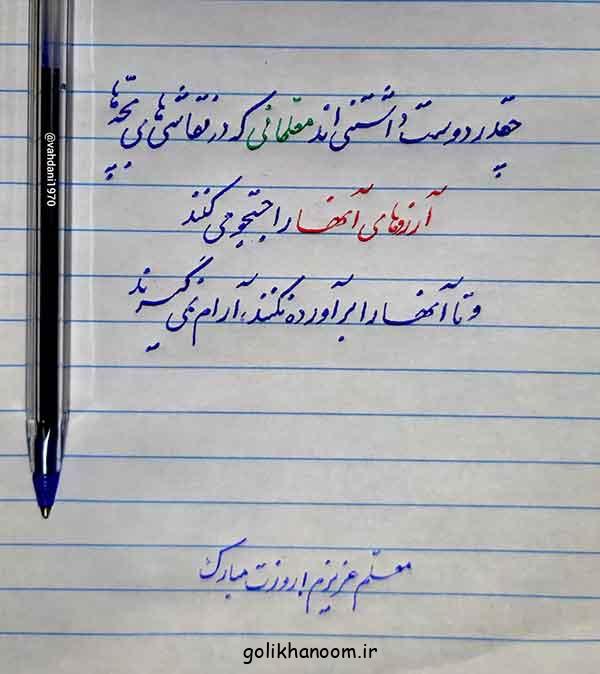 چقدر دوست داشتنی اند معلمانی که در نقاشی‌های بچه‌ها
آرزوهای آنها را جستجو می کنند
و تا آنها را برآورده نکنند، آرام نمی گیرند
معلم عزیزم! روزت مبارک
@vahdani1970
golikhanoom.ir